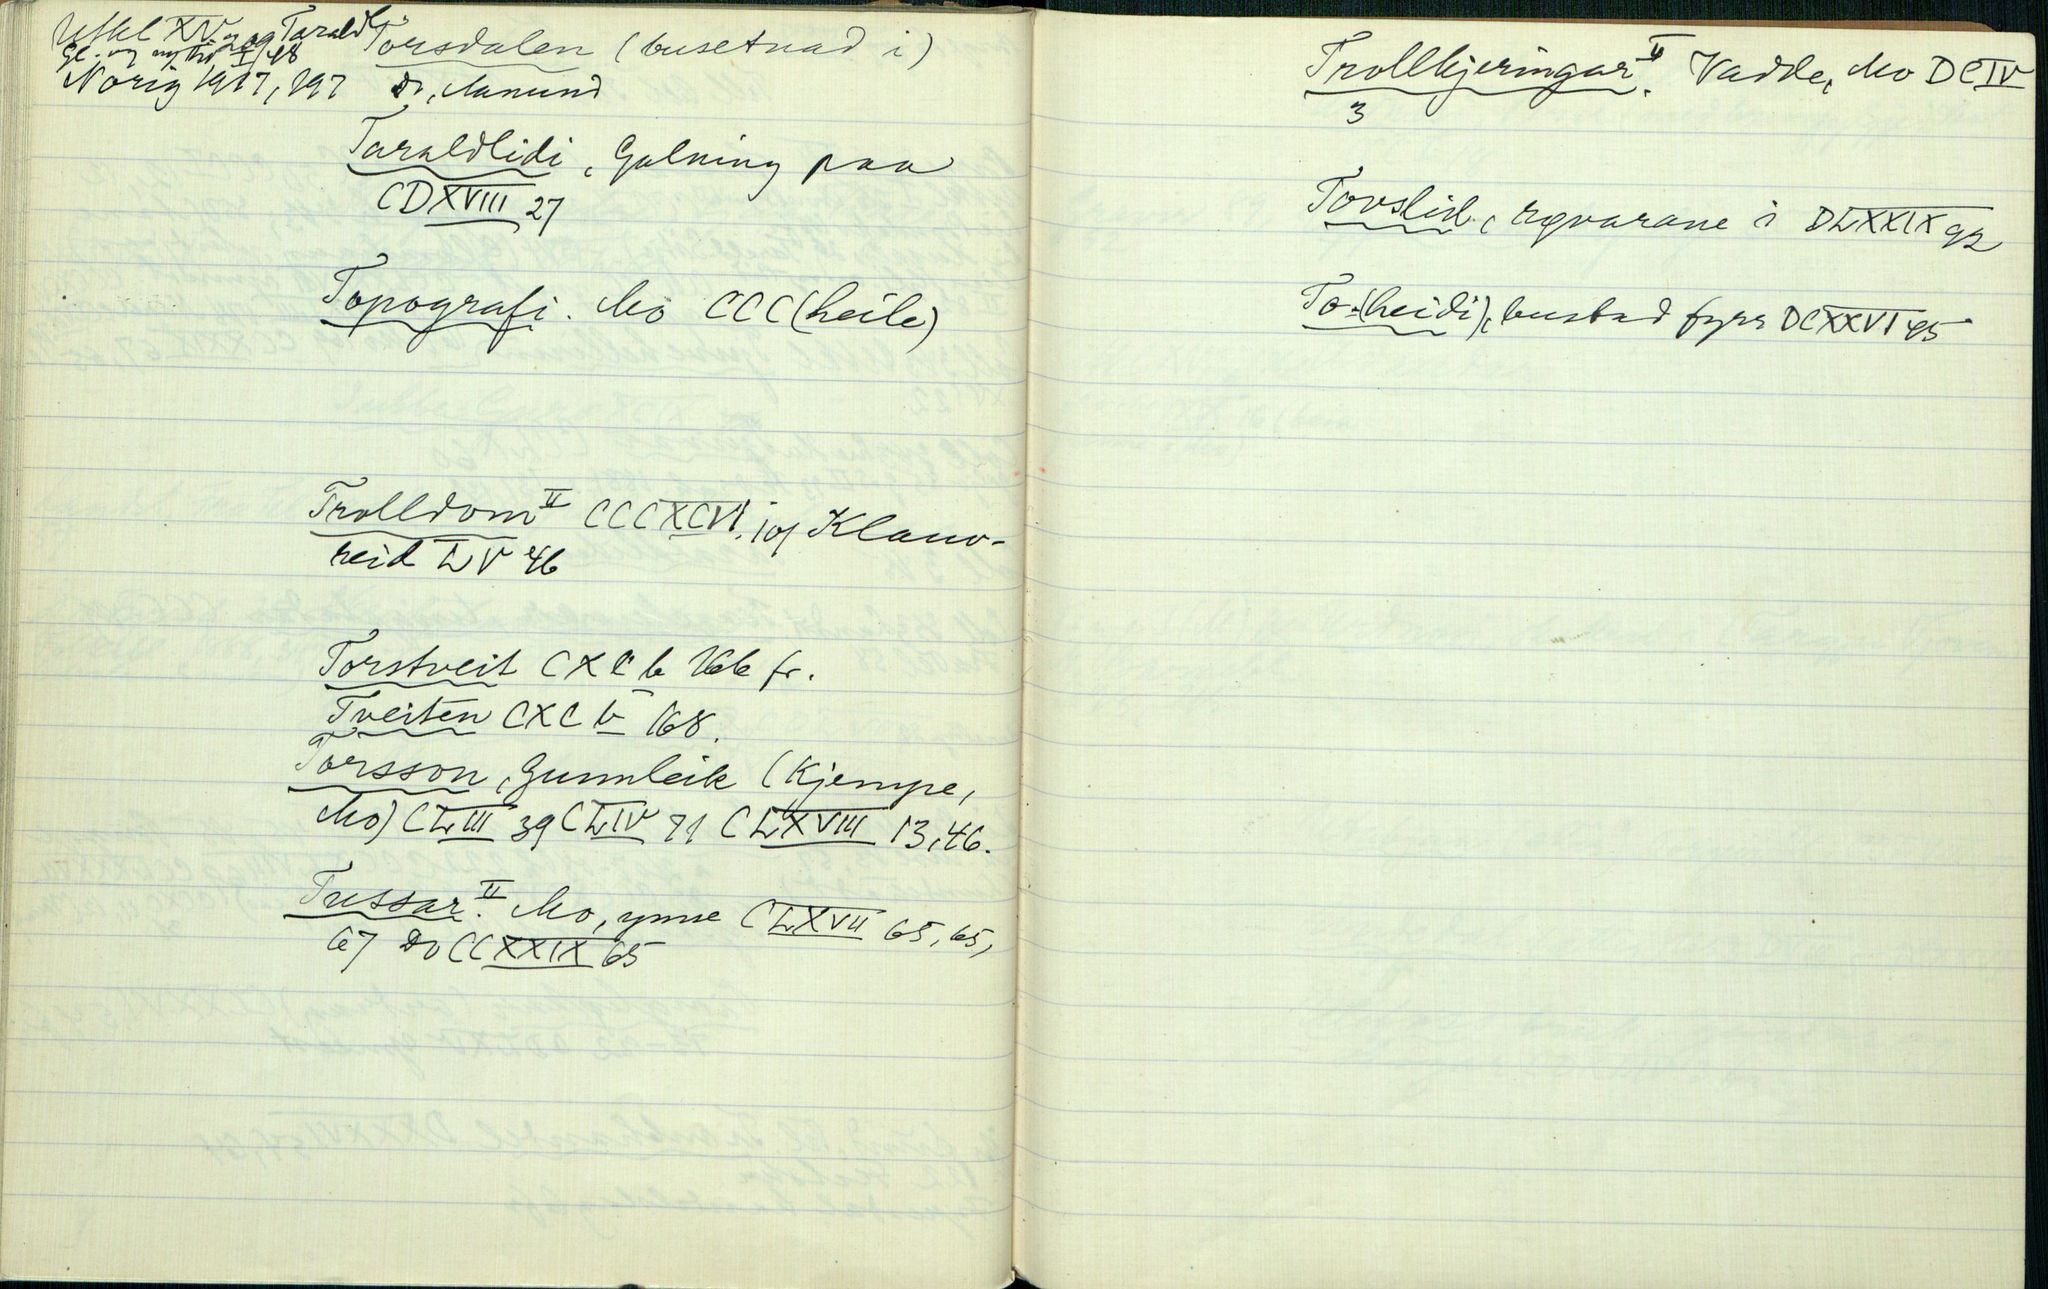 Torsdalen (busetnad i)
Gl. og nytt I 48
Norig 1917, 197
Do, Aamund
Taraldlidi, Galning paa
CDXVIII 27
Topografi. Mo CCC (heile)
Trolldom II CCCXCVI. jof Klauv-
reid LV 46
Torstveit CXC b 166 fr.
Tveiten CXC b 168.
Torsson, Gunnleik (Kjempe,
Mo) CLIII 39 CLIV 71 CLXVIII 13, 46.
Tussar. II Mo, ymse CLXVII 65, 65,
67 Do CCXXIX 65
Trollkjeringar II. Vadde, Mo DCIV
3
Tovslid, røvarane i DLXXIX 92
To-(heidi), bustad fyrr DCXXVI 45